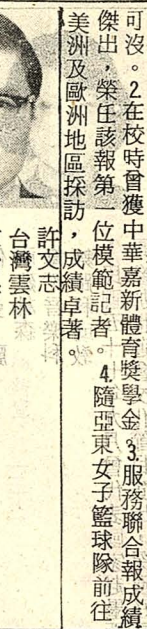 可沒。2.在校時曾獲中華嘉新體育獎學金。3.服務聯合報成績
傑出，榮任該報第　位模範記者。4.隨亞東女子籃球隊前往
美洲及歐洲地區採訪，成績卓著。
許文志
台灣雲林